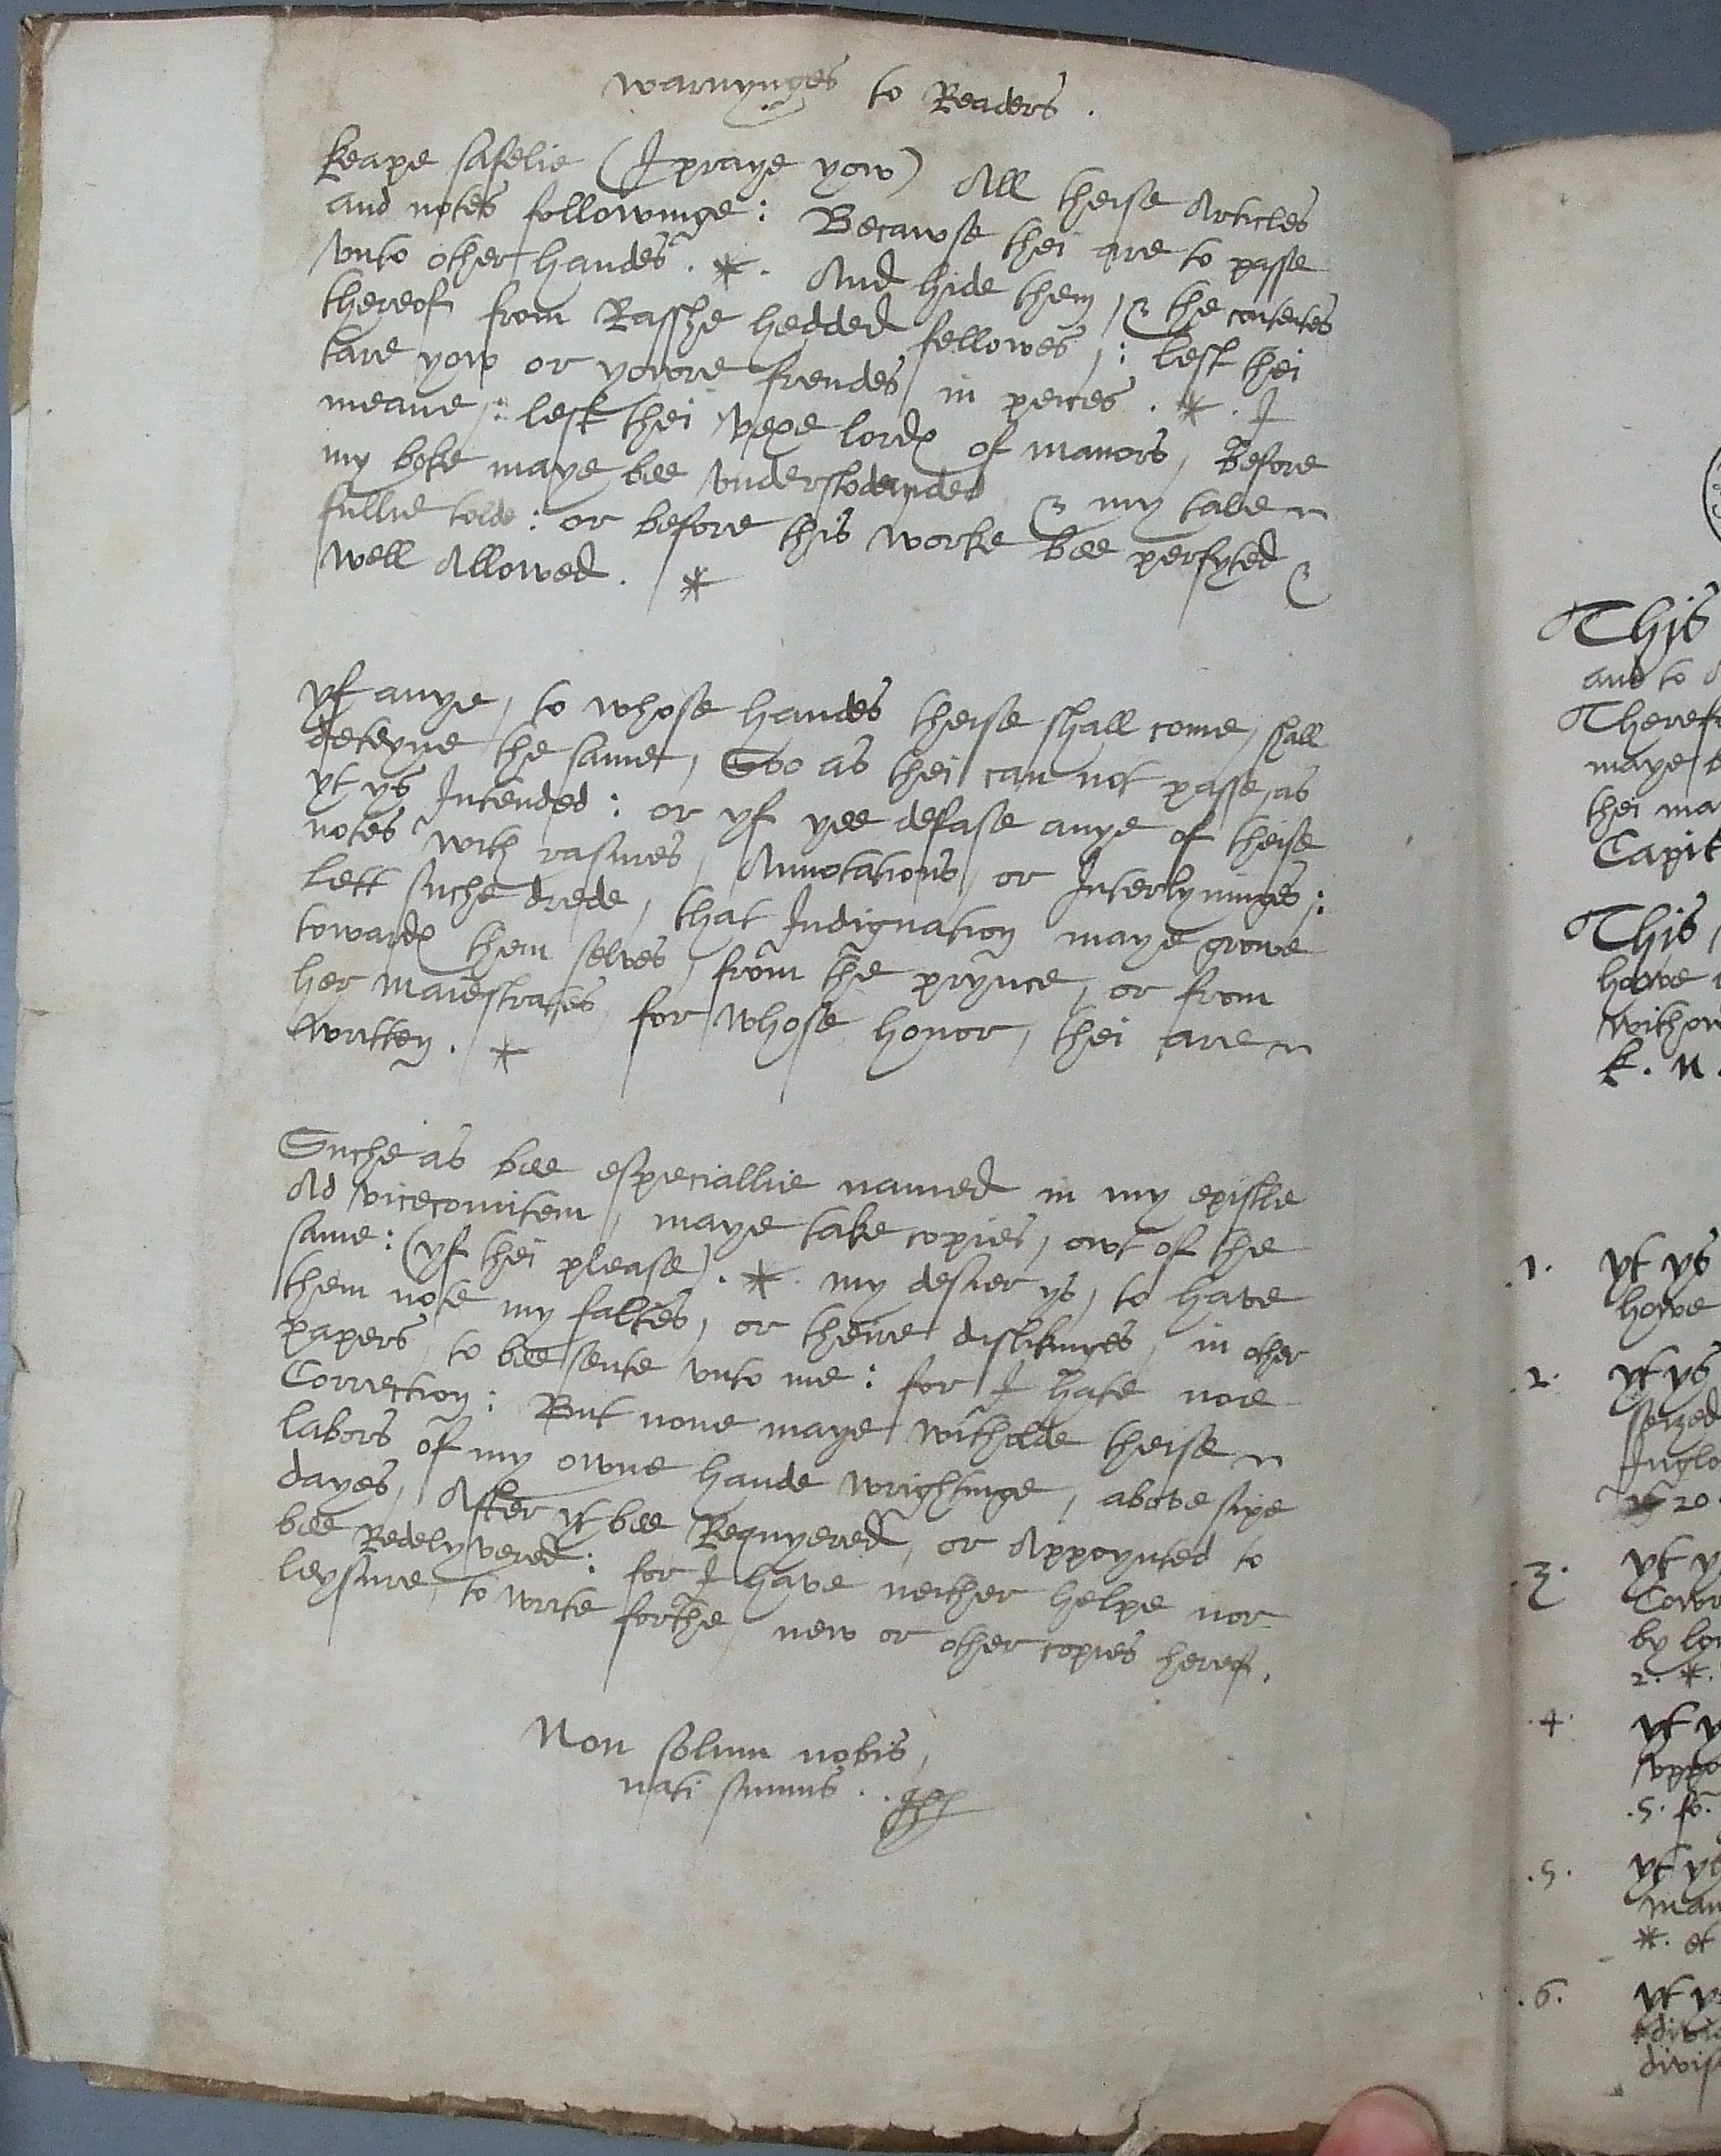 warnynges to Readers.
Keape safelie (I praye yow) All theise Articles
and notes followinge: Becawse thei are to passe
vnto other handes. *. And hide them, & the contentes
thereof from Rasshe hedded fellowes,: lest thei
tare yow or yowre frendes in peices. *. I
meane,: lest thei vexe lordes of manors, Before
my boke maye bee vnderstoden & my tale
fullie tolde: or before this worke bee perfyted &
well Allowed. *
yf anye, to whose handes theise shall come, shall
deteyne the same, Soo as thei can not passe, as
yt ys Intended: or yf yee defase anye of theise
notes with rasures, Annotations, or Interlyninges:
Lett suche drede, that Indignation maye growe
towardes them selves, from the prynce, or from
her maiestrates, for whose honor, thei are
written. *
Suche as bee especiallie named in my epistle
Ad vicecomitem, maye take copies, owt of the
same: (yf thei please). *. my desier ys, to have
them note my faltes, or theire dislikinges, in other
papers, to bee sente vnto me: for I hate noe
Correction: But none maye witholde theise
labors of my owne hande wrightinge, above sixe
dayes, After yt bee Requyered, or Appoynted to
bee Redelyvered: for I have neither helpe nor
leysure, to write forthe new or other copies hereof.
Non solum nobis,
nati sumus..
This
and to
maye
thei
.1. yt ys
howe
.2. yt ys
seized
20.
.3.
by
2. *.
.4. yt
.5. fo.
.5. yt ys
*. et
.6. yt